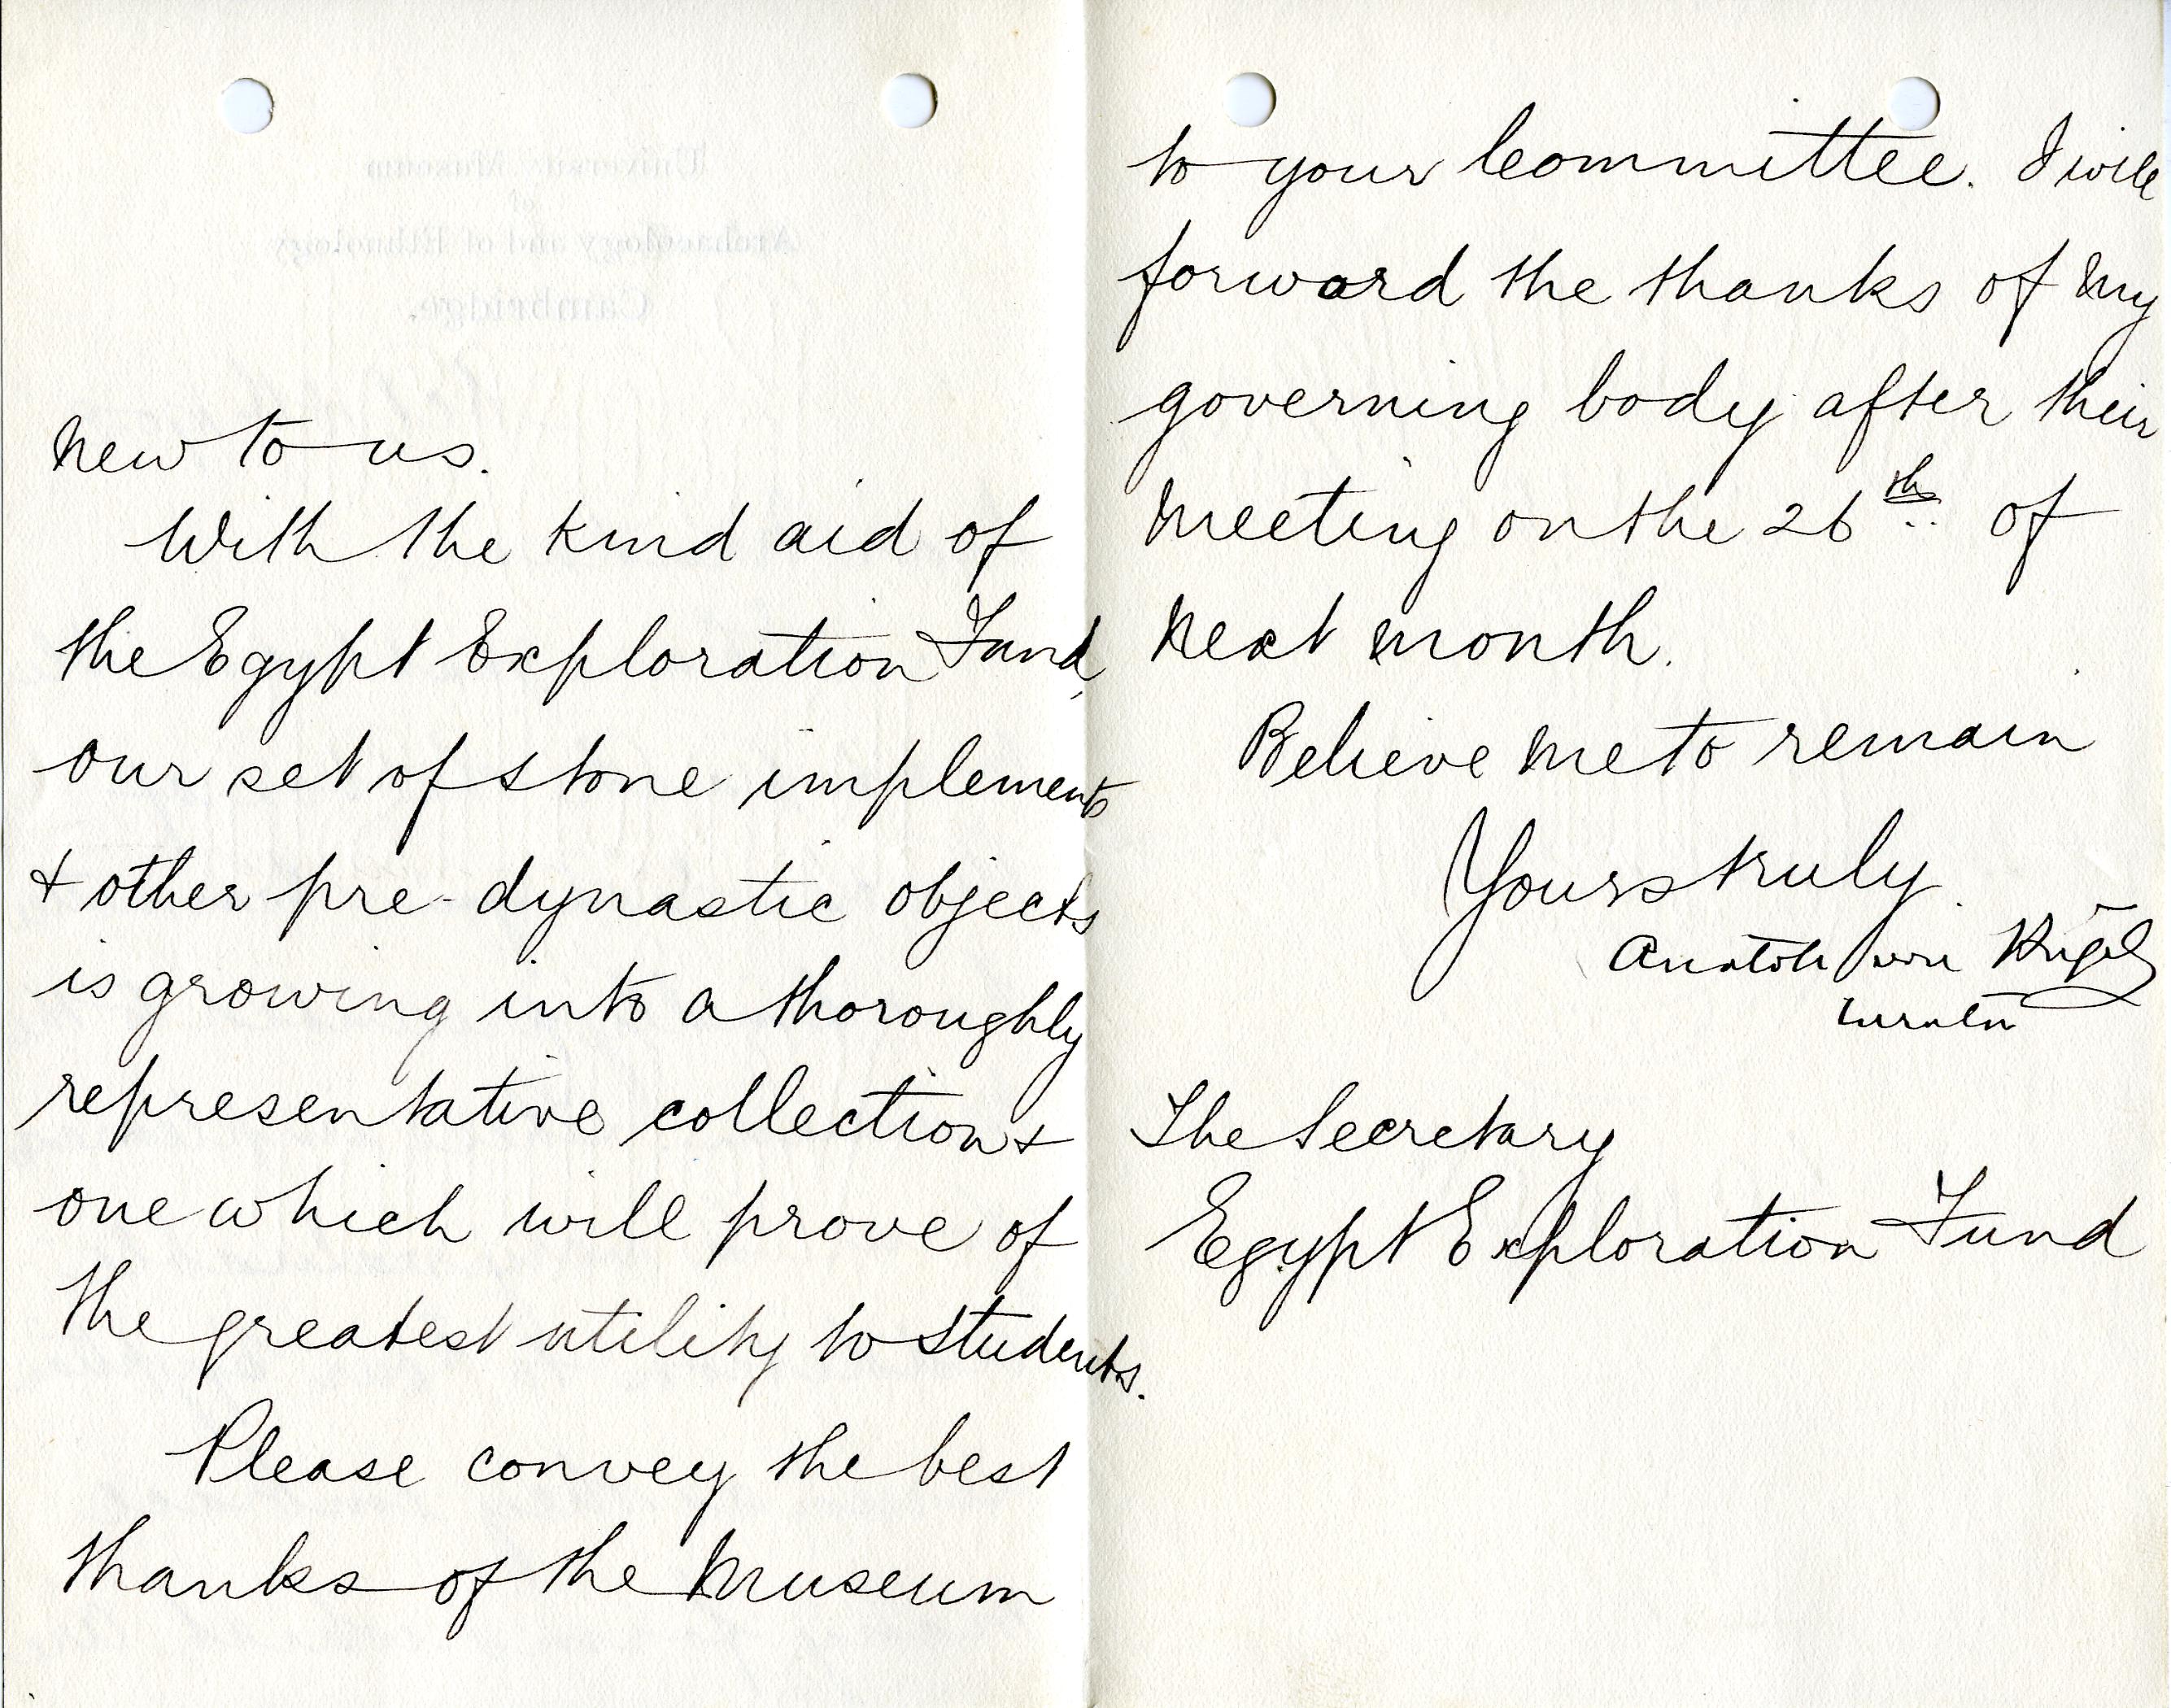 new to us.
With the kind aid of
the Egypt Exploration Fund,
our set of stone implements
& other pre-dynastic objects
is growing into a thoroughly
representative collection &
one which will prove of
the greatest utility to students.
Please convey the best
thanks of the Museum
to your Committee. I will
forward the thanks of my
governing body after their
meeting on the 26th of
next month.
Believe me to remain
Yours truly.
Anatole von Hügel
curator
The Secretary
Egypt Exploration Fund
University Museum
of
Archaeology and of Ethnology
Cambridge.